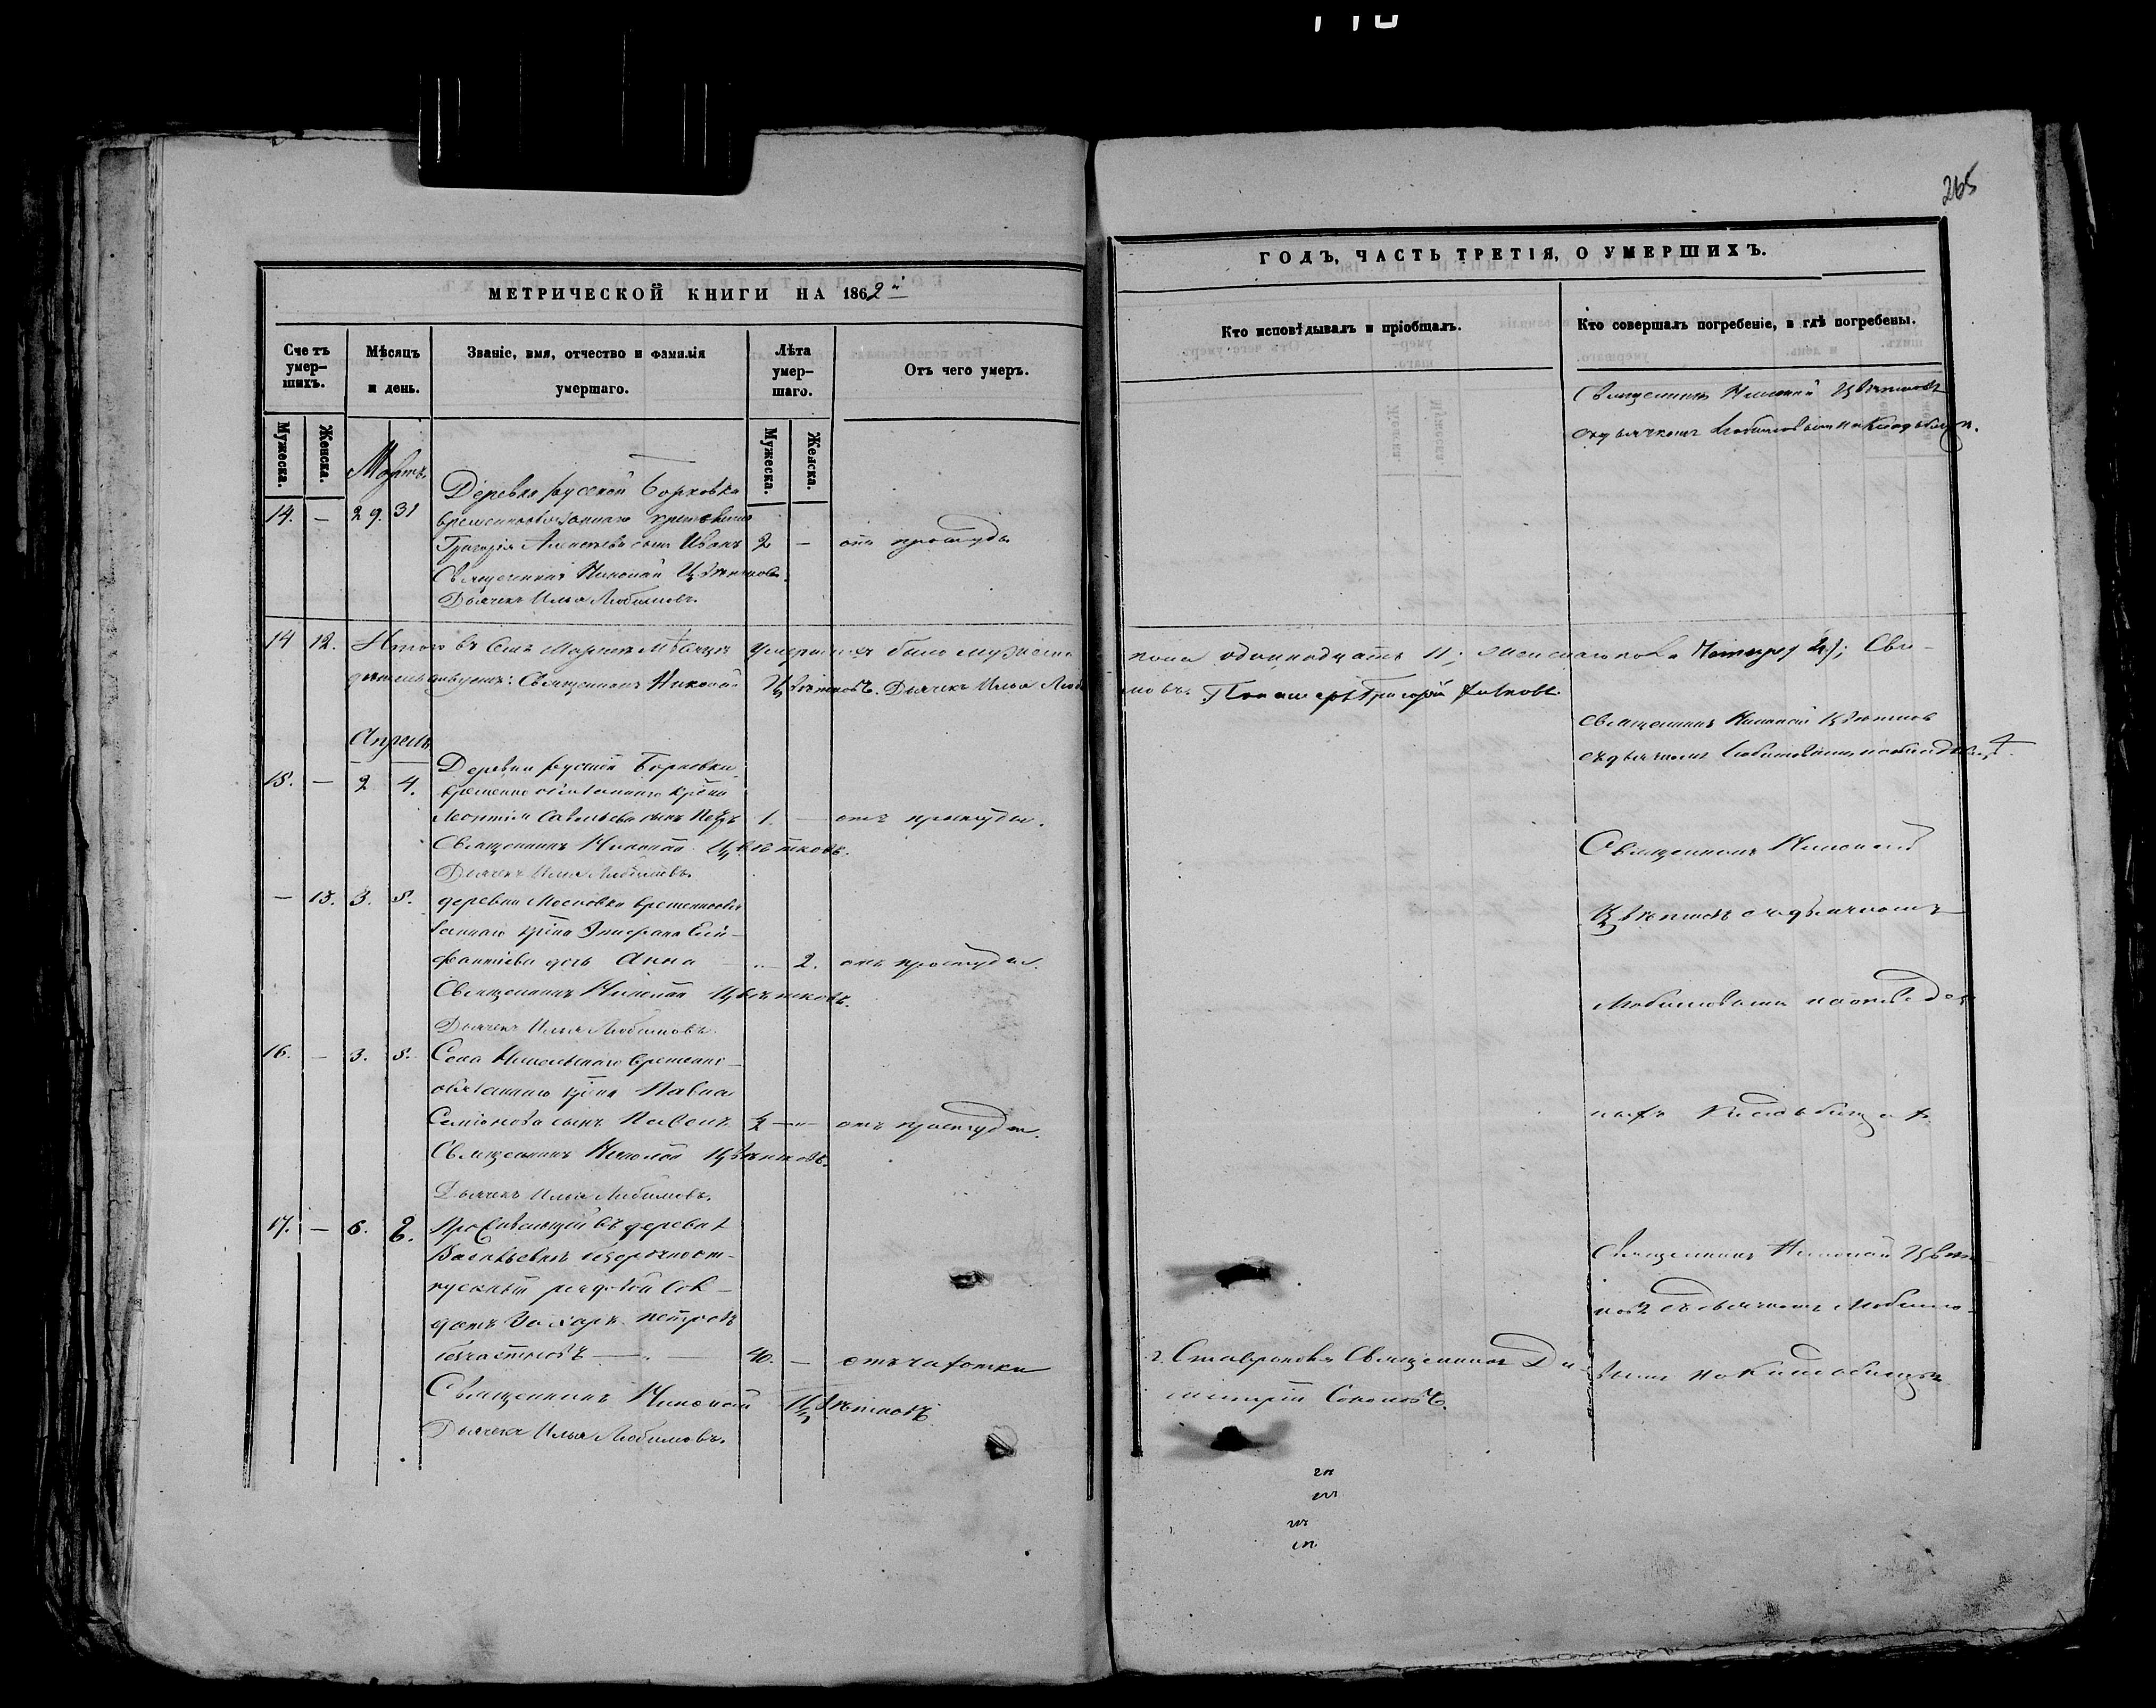 265
МЕТРИЧЕСКОЙ КНИГИ НА 1862й
Счетъ умер-шихъ.
Мѣсяцъ и день.
Званіе, имя, отчество и фамилія умершаго.
Лѣта умер-шаго.
Отъ чего умеръ.
Мужеска.
Женска.
Мужеска.
Женска.
Мартъ
Деревни русской Борковки
14. — 29. 31 временнообязаннаго
Григорія Алексѣева сынъ Иванъ 2 — отъ простуды
Священникъ Николай Цвѣтковъ.
Дьячекъ Илья Любимовъ.
14 12. Итого въ Мартѣ Мѣсяцѣ умершихъ было мужеска
Священникъ Николай Цвѣтковъ. Дьячекъ Илья Люби
Апрель
Деревни русской Борковки
15. — 2 4. временно обязаннаго крѣна
Леонтія Савельева сынъ Петръ 1. — отъ простуды.
Священникъ Николай Цвѣтковъ.
Дьячекъ Илья Любимовъ.
— 13. 3. 5. деревни временнообя
заннаго крѣна
дочь Анна — 2. отъ простуды.
Священникъ Николай Цвѣтковъ.
Дьячекъ Илья Любимовъ.
16. — 3. 5. Села Никольскаго временно-
обязаннаго крѣна Павла
Семіонова сынъ — отъ простуды.
Священникъ Николай Цвѣтковъ.
Дьячекъ Илья Любимовъ.
17. — 6. 8. Проживающій въ деревнѣ
Васильевкѣ безсрочноот-
пускный рядовой Сол-
датъ Захаръ Петровъ
40. — отъ чахотки
Священникъ Николай Цвѣтковъ
Дьячекъ Илья Любимовъ.
ГОДЪ, ЧАСТЬ ТРЕТІЯ, О УМЕРШИХЪ.
Кто исповѣдывалъ и пріобщалъ.
Кто совершалъ погребеніе, и гдѣ погребены.
Священникъ Николай Цвѣтковъ
съ дьячкомъ Любимовымъ на кладбищѣ.
пола одиннадцать 11; женскаго пола Четыре 4); Сви-
мовъ. Пономарь Григорій
Священникъ Николай Цвѣтков
съ дьячкомъ Любимовымъ
Священникъ Николай
Цвѣтковъ съ дьячкомъ
Любимовымъ на
кладбищѣ
Священникъ Николай Цвѣт-
ковъ съ дьячкомъ Любимо-
вымъ на кладбищѣ
г. Ставрополя Священникъ Ди-
митрій Соколовъ.